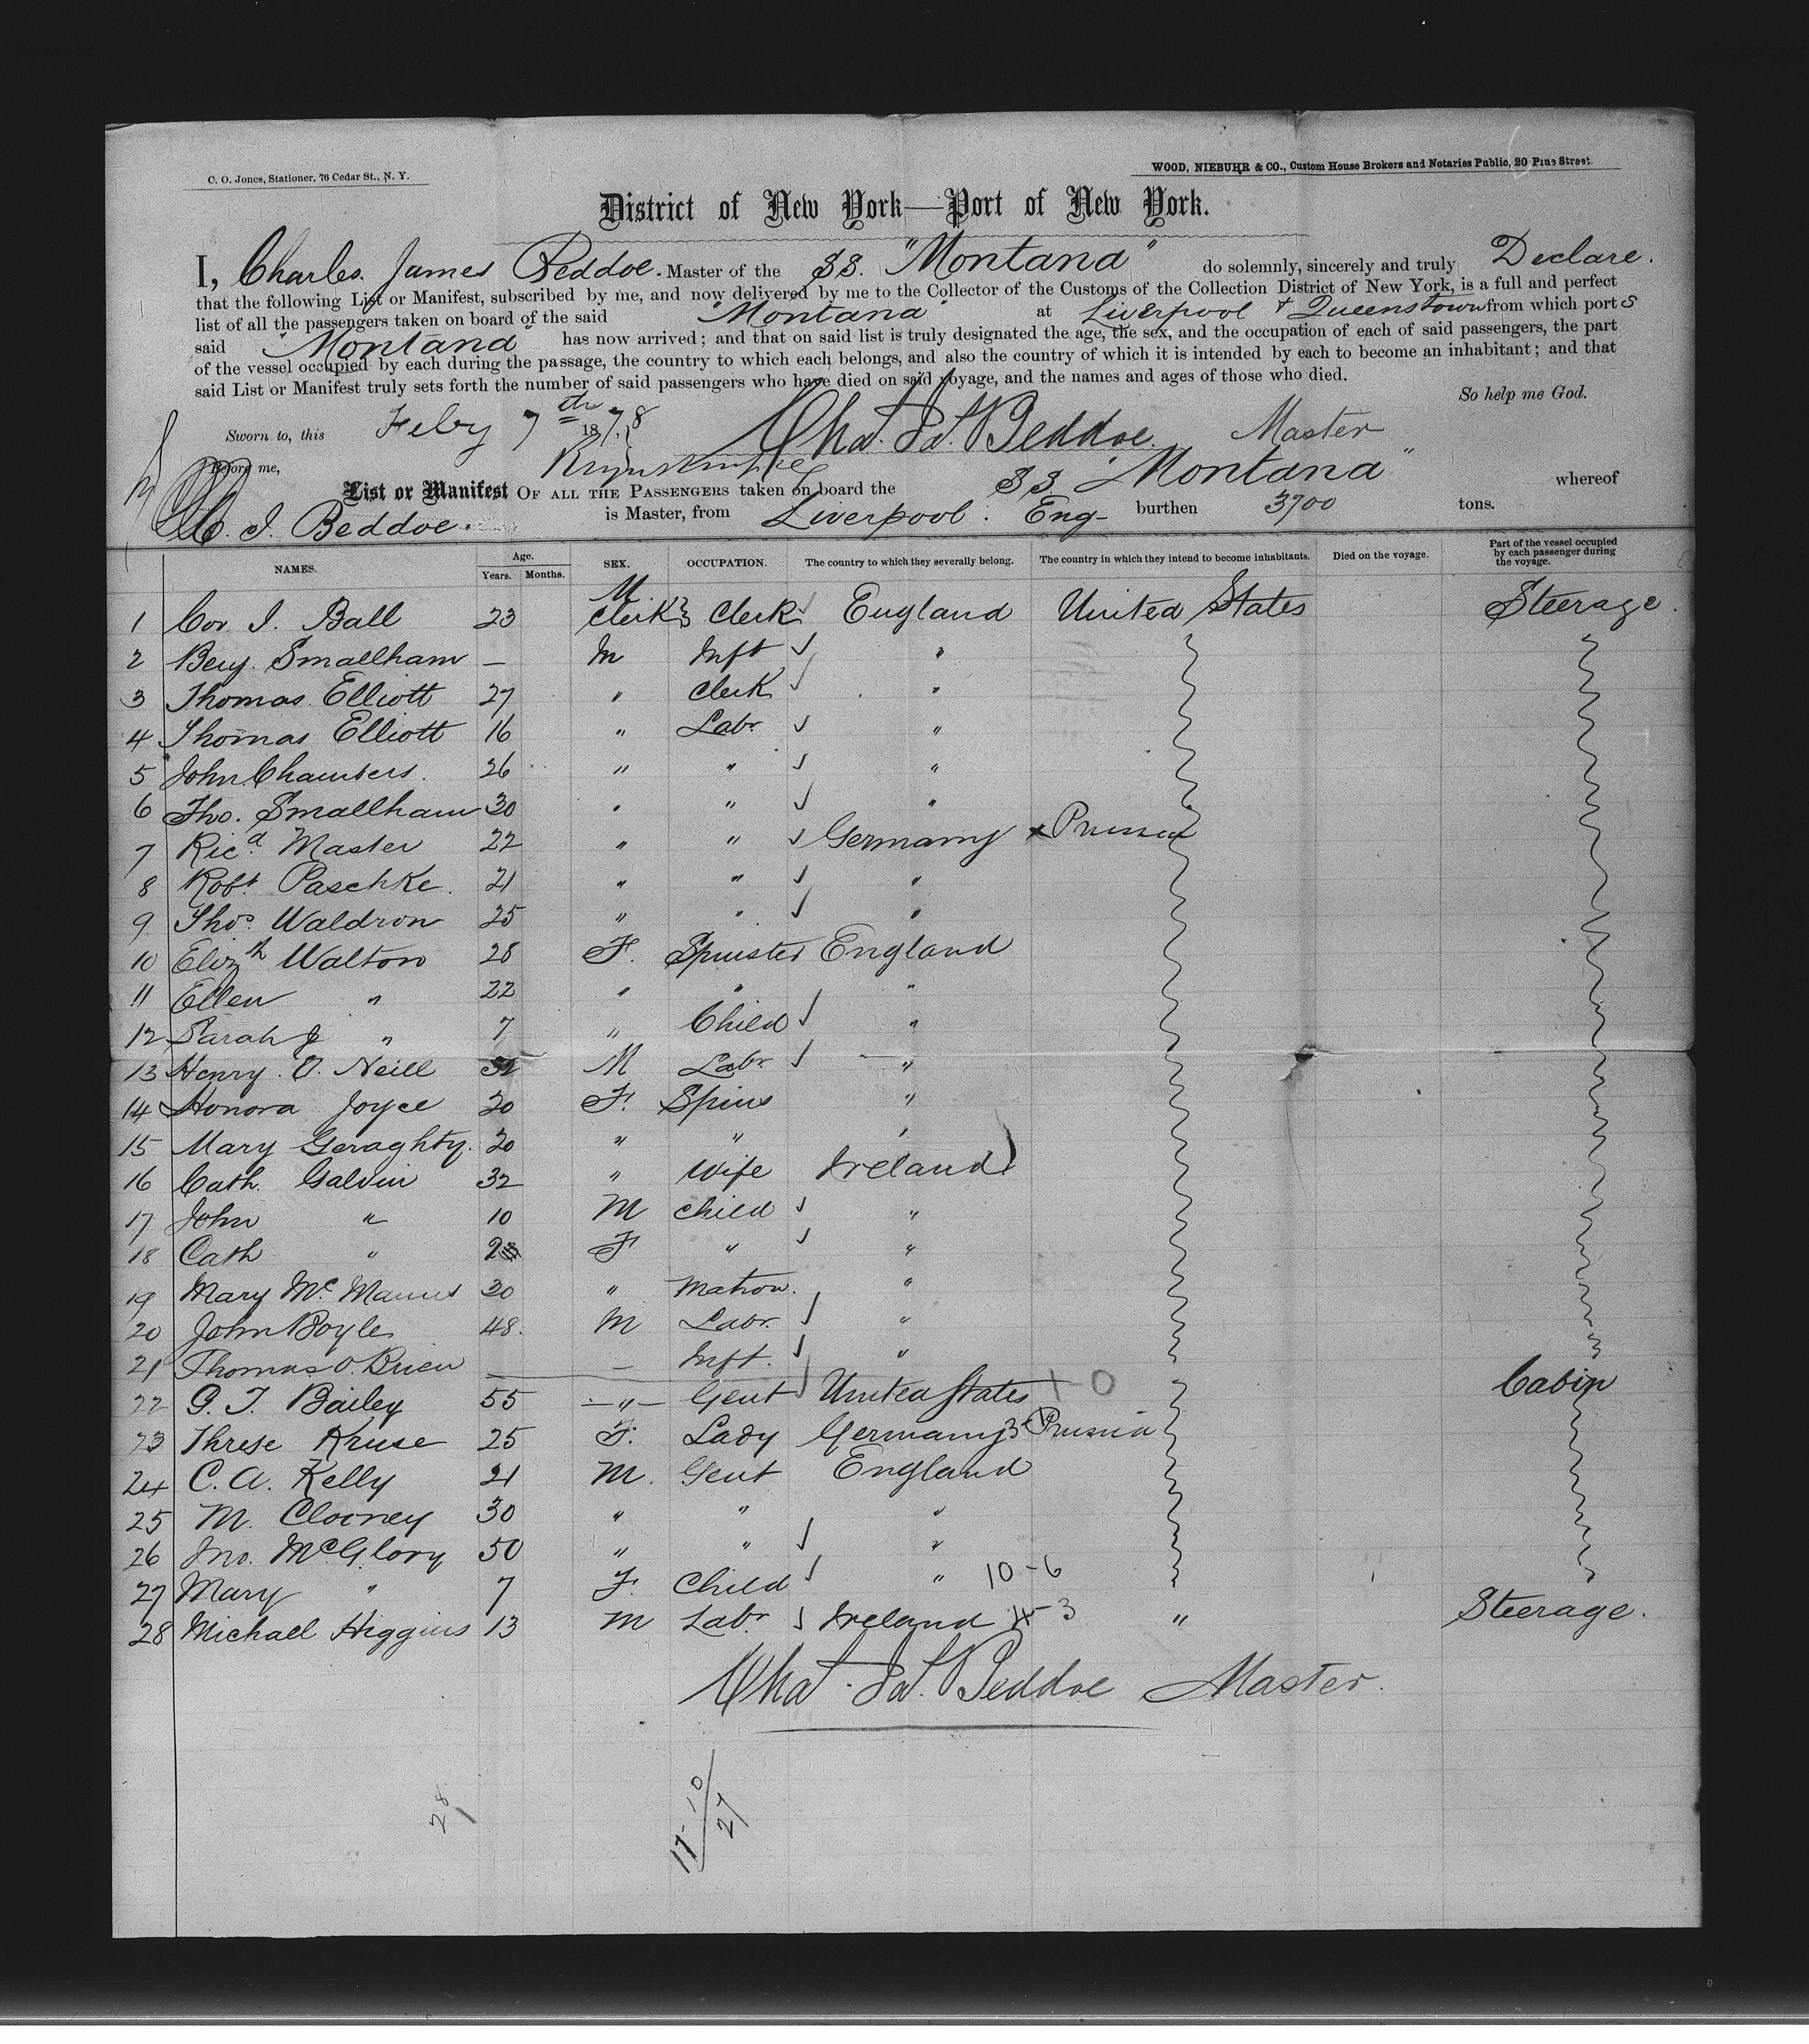 C. O. Jones, Stationer, 76 Cedar St., N. Y.
WOOD, NIEBUHR & CO., Custom House Brokers and Notaries Public, 20 Pine Street.
District of New York—Port of New York.
I, Charles James Beddoe. Master of the SS. "Montana" do solemnly, sincerely and truly Declare.
that the following List or Manifest, subscribed by me, and now delivered by me to the Collector of the Customs of the Collection District of New York, is a full and perfect
list of all the passengers taken on board of the said "Montana" at Liverpool + Queenstown from which ports
said "Montana" has now arrived; and that on said list is truly designated the age, the sex, and the occupation of each of said passengers, the part
of the vessel occupied by each during the passage, the country to which each belongs, and also the country of which it is intended by each to become an inhabitant; and that
said List or Manifest truly sets forth the number of said passengers who have died on said voyage, and the names and ages of those who died.
So help me God.
Sworn to, this Feby 7th 1878 Chas. Js. Beddoe. Master
Before me,
List or Manifest OF ALL THE PASSENGERS taken on board the SS "Montana" whereof
C. J. Beddoe. is Master, from Liverpool. Eng- burthen 3700 tons.
NAMES. Age. Years. Months. SEX. OCCUPATION. The country to which they severally belong. The country in which they intend to become inhabitants. Died on the voyage. Part of the vessel occupied by each passenger during the voyage.
1 J. Ball 23 M Clerk Clerk England United States Steerage.
2 Benj. Smallham — M Inft "
3 Thomas Elliott 27 " Clerk "
4 Thomas Elliott 16 " Labr. "
5 John Chambers. 26 " " "
6 Tho. Smallham 30 " " "
7 Ricd. Master 22 " " Germany x Prussia
8 Robt. Paschke. 21 " " "
9 Thos. Waldron 25 " " "
10 Elizth Walton 28 F. Spinster England
11 Ellen " 22 " " "
12 Sarah J " 7 " Child "
13 Henry O. Neill 32 M Labr. "
14 Honora Joyce 20 F. Spins "
15 Mary Geraghty. 20 " " "
16 Cath. Galvin 32 " Wife Ireland
17 John " 10 M child "
18 Cath " F " "
19 Mary Mc. Manus 30 " Matron. "
20 John Boyle 48. M Labr. "
21 Thomas O Brien — — Inft. "
22 G. T. Bailey 55 — " — Gent United States 10 Cabin
23 Threse Kruse 25 F. Lady Germany Prussia
24 C. A. Kelly 21 M. Gent England
25 M. Clooney 30 " " "
26 Jno. McGlory 50 " " "
27 Mary " 7 F. Child " 10-6
28 Michael Higgins 13 M Labr. Ireland 4-3 " Steerage.
Chas. Js. Beddoe Master.
28
17-10
27